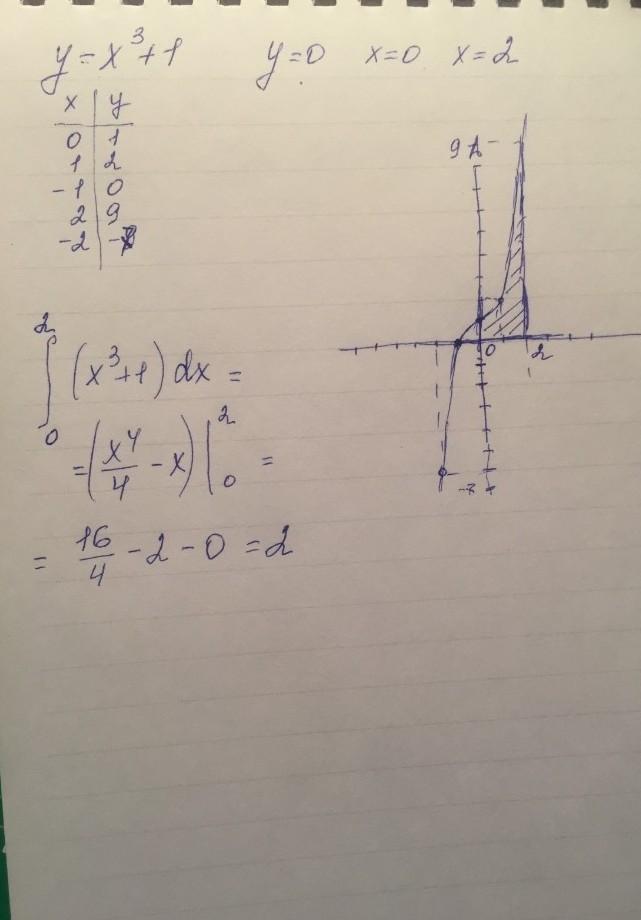 y = x³ + 1    y = 0    x = 0    x = 2
x | y
0 | 1
1 | 2
-1 | 0
2 | 9
-2 | -
9
0
2
-7
∫₀² (x³ + 1) dx =
= (x⁴/4 - x) |₀² =
= 16/4 - 2 - 0 = 2